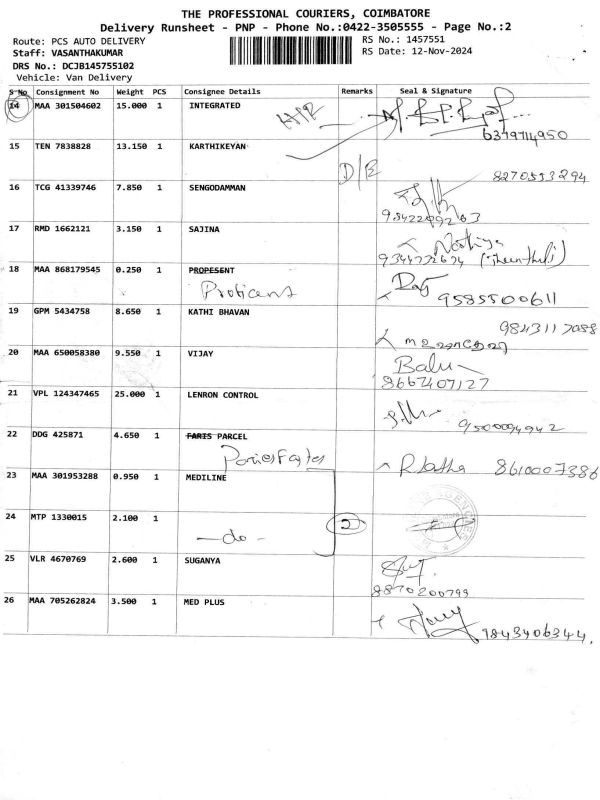 THE PROFESSIONAL COURIERS, COIMBATORE
Delivery Runsheet - PNP - Phone No.:0422-3505555 - Page No.:2
Route: PCS AUTO DELIVERY
RS No.: 1457551
Staff: VASANTHAKUMAR
RS Date: 12-Nov-2024
DRS No.: DCJB145755102
Vehicle: Van Delivery
S No Consignment No Weight PCS Consignee Details Remarks Seal & Signature
14 MAA 301504602 15.000 1 INTEGRATED
6379714950
15 TEN 7838828 13.150 1 KARTHIKEYAN
D/B 8270553294
16 TCG 41339746 7.850 1 SENGODAMMAN
17 RMD 1662121 3.150 1 SAJINA
18 MAA 868179545 0.250 1 PROPESENT
9585500611
19 GPM 5434758 8.650 1 KATHI BHAVAN
9843117088
20 MAA 650058380 9.550 1 VIJAY
Balu
8667407127
21 VPL 124347465 25.000 1 LENRON CONTROL
9500094942
22 DDG 425871 4.650 1 FARIS PARCEL
8610007386
23 MAA 301953288 0.950 1 MEDILINE
24 MTP 1330015 2.100 1
- do - 2
25 VLR 4670769 2.600 1 SUGANYA
8870200799
26 MAA 705262824 3.500 1 MED PLUS
9843406344